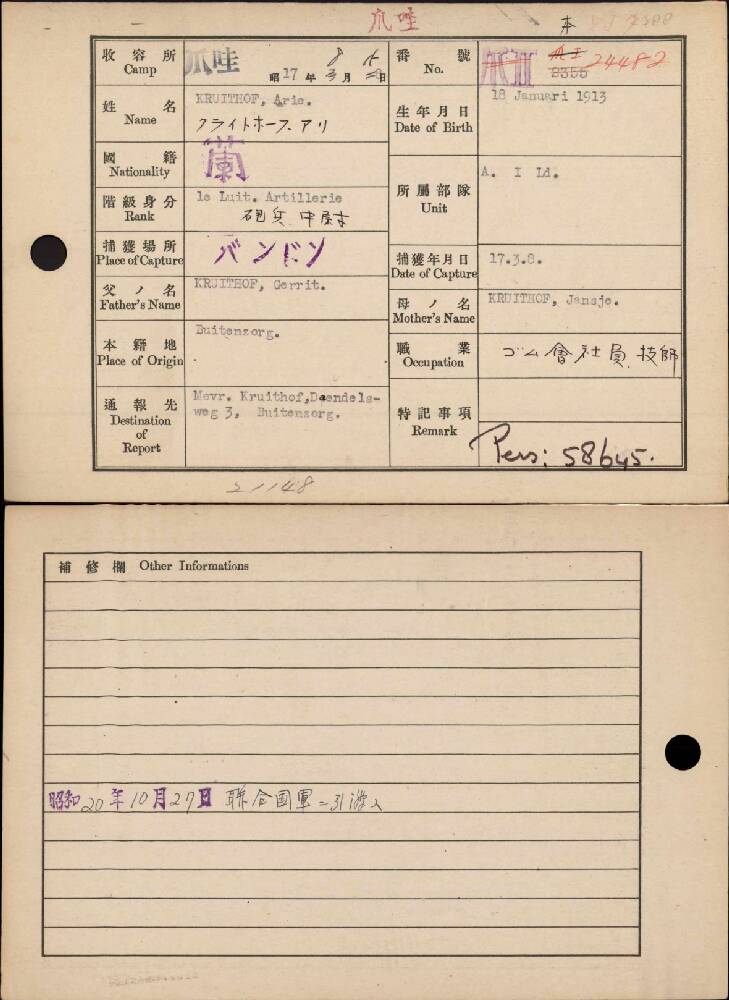 爪哇
本
收容所 Camp 爪哇 昭17年 8 15
番號 No. 爪II 2355 24482
姓名 Name KRUITHOF, Arie.
クライトホーフ アリ
生年月日 Date of Birth 18 Januari 1913
國籍 Nationality 蘭
階級身分 Rank 1e Luit. Artillerie
砲兵 中尉
所屬部隊 Unit A. I Ld.
捕獲場所 Place of Capture バンドン
捕獲年月日 Date of Capture 17.3.8.
父ノ名 Father's Name KRUITHOF, Gerrit.
母ノ名 Mother's Name KRUITHOF, Jansje.
本籍地 Place of Origin Buitenzorg.
職業 Occupation ゴム會社員 技師
通報先 Destination of Report Mevr. Kruithof, Daendels-
weg 3, Buitenzorg.
特記事項 Remark Pers: 58645.
21148
補修欄 Other Informations
昭和20年10月27日 聯合国軍ニ引渡ス